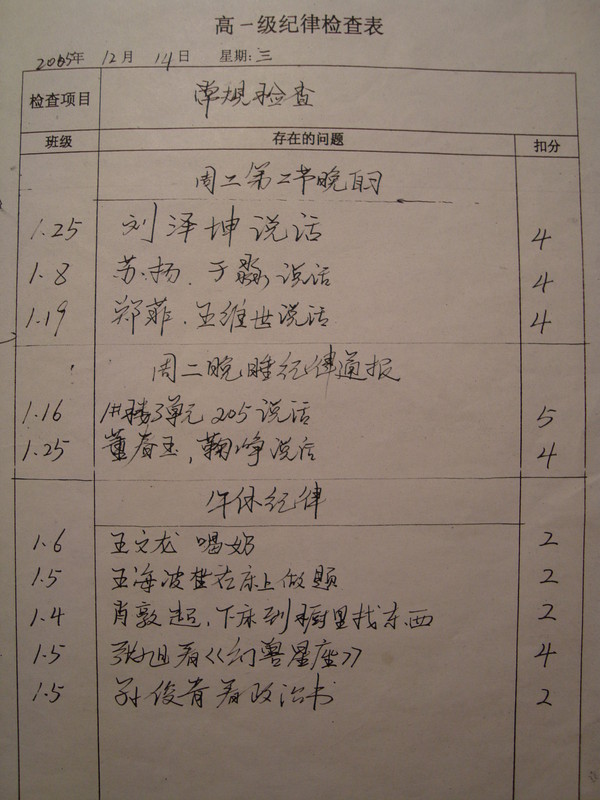 高一级纪律检查表
2005年 12月 14日 星期:三
检查项目 常规检查
班级 存在的问题 扣分
周二第二节晚自习
1.25 刘泽坤说话 4
1.8 苏扬、于淼说话 4
1.19 郑菲、王维世说话 4
周二晚睡纪律通报
1.16 3单元205说话 5
1.25 董春玉,鞠峥说话 4
午休纪律
1.6 王文龙 喝奶 2
1.5 王海波坐在床上做题 2
1.4 肖敦起,下床到橱里找东西 2
1.5 张旭看《幻兽星座》 4
1.5 孙俊青看政治书 2